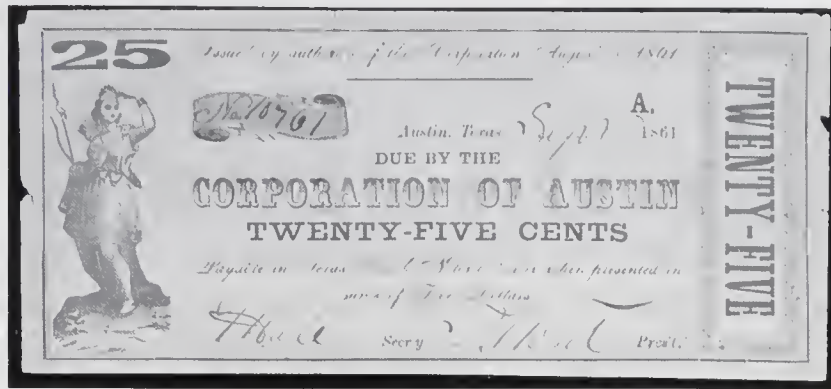 25
Issued by authority of the Corporation 1861
No. 10761
A.
Austin, Texas Sept 1861
DUE BY THE
CORPORATION OF AUSTIN
TWENTY-FIVE CENTS
Payable in when presented in
sums of Dollars
Secry Presit.
TWENTY-FIVE